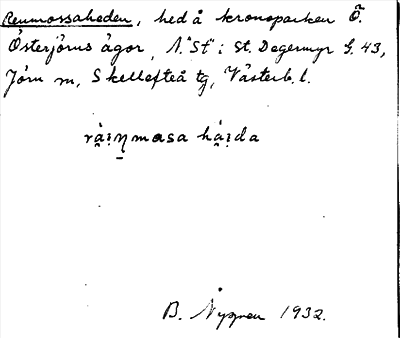 Renmossaheden, hed å kronoparken Ö.
Österjörns ägor, N. "St" i St. Degermyr G. 43,
Jörn sn, Skellefteå tg, Västerb. l.
rà̤i̥ŋmasa hä́i̥da
B. Nygren 1932.